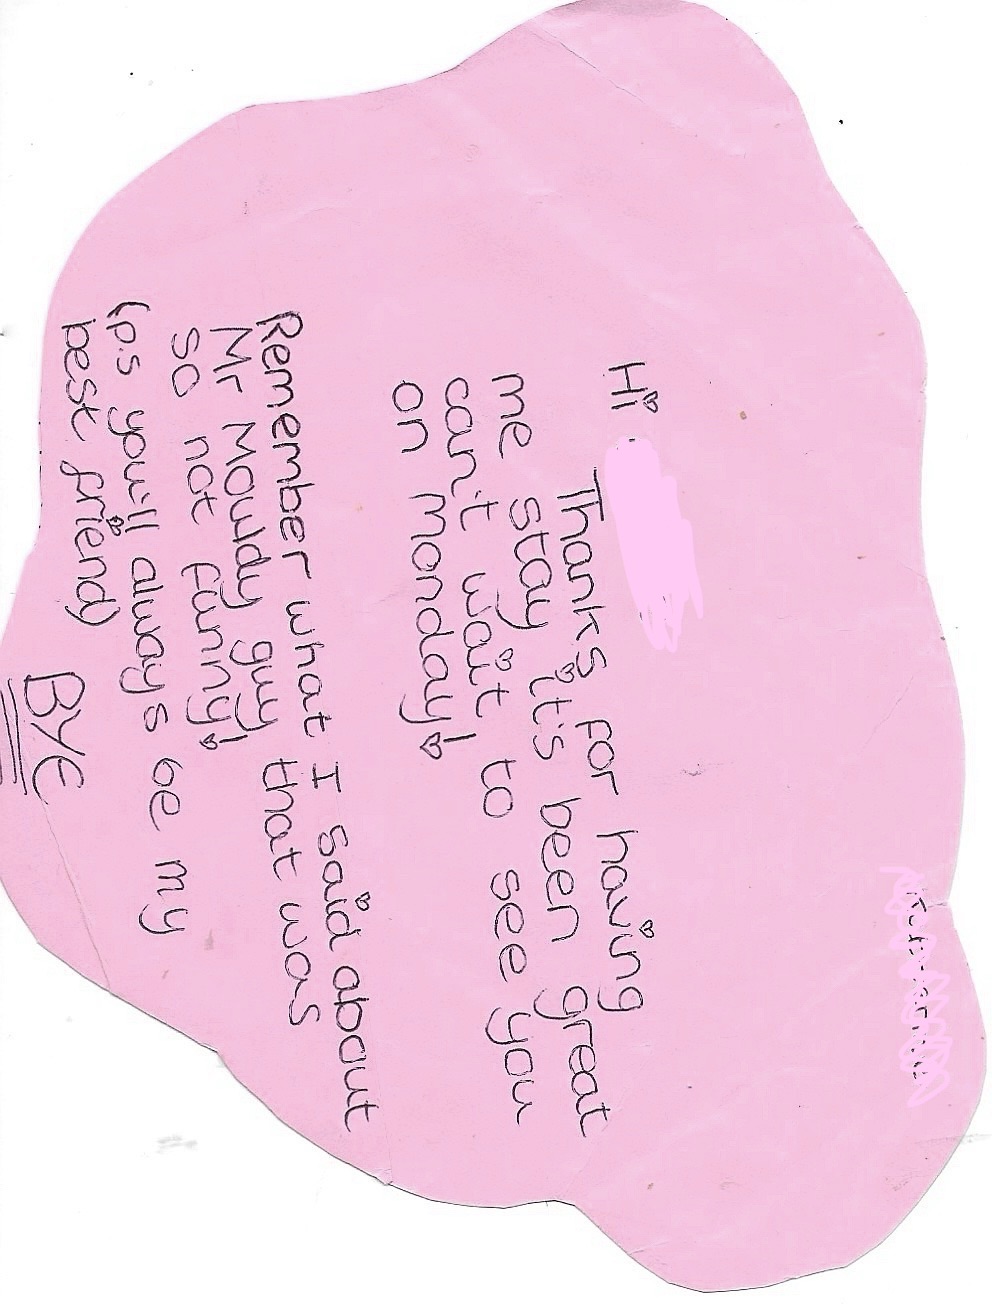 Hi
Thanks for having
me stay it's been great
can't wait to see you
on monday!
Remember what I said about
Mr Mowdy guy that was
so not funny!
(p.s you'll always be my
best friend)
BYE